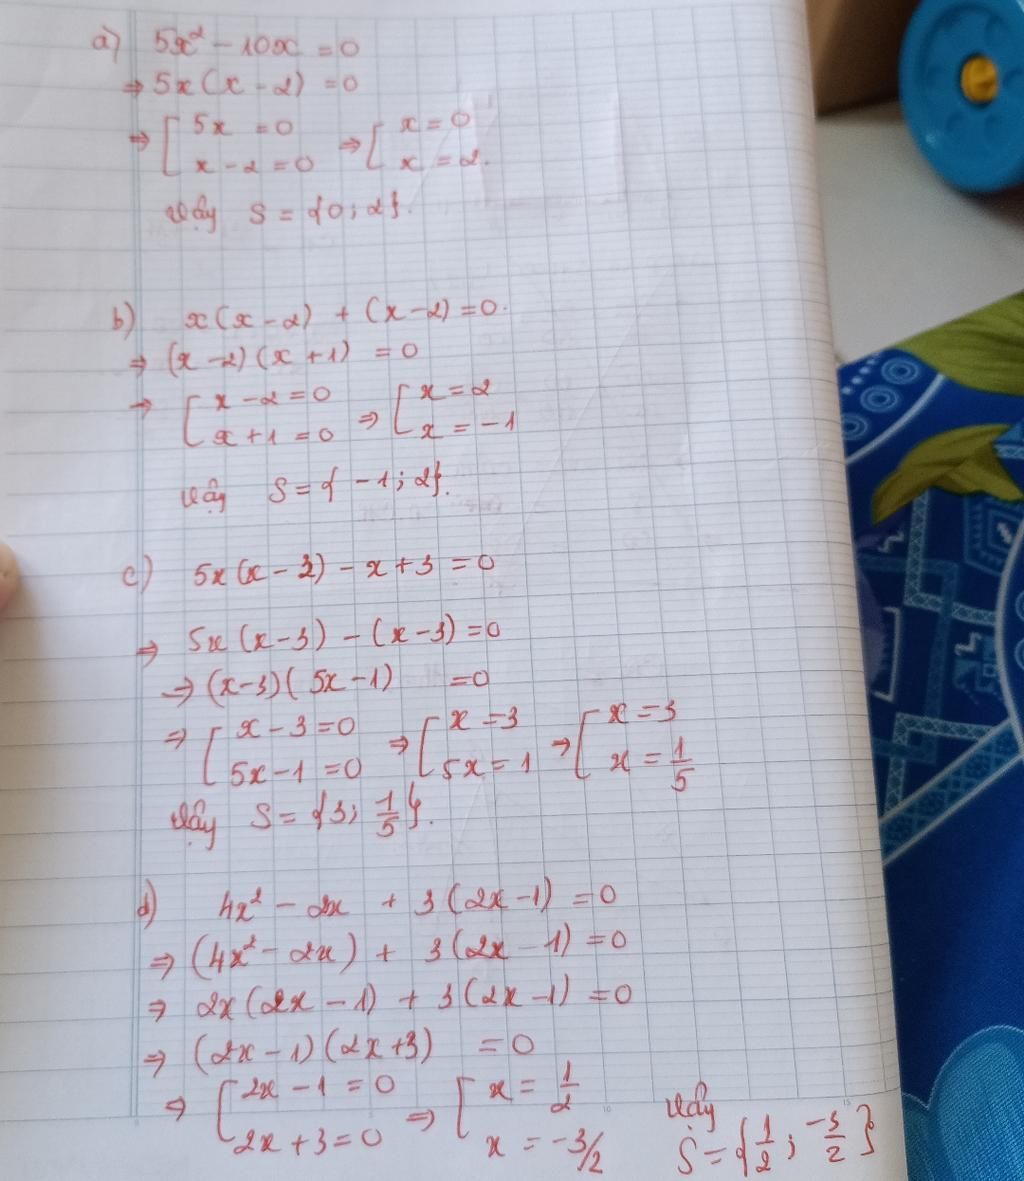 a) 5x² - 10x = 0
⇒ 5x (x - 2) = 0
⇒ [ 5x = 0 ⇒ [ x = 0
x - 2 = 0 x = 2.
Vậy S = {0; 2}.
b) x(x - 2) + (x - 2) = 0.
⇒ (x - 2) (x + 1) = 0
→ [ x - 2 = 0 ⇒ [ x = 2
x + 1 = 0 x = -1
Vậy S = { -1; 2}.
c) 5x (x - 3) - x + 3 = 0
⇒ 5x (x - 3) - (x - 3) = 0
→ (x - 3) ( 5x - 1) = 0
⇒ [ x - 3 = 0 ⇒ [ x = 3 ⇒ [ x = 3
5x - 1 = 0 5x = 1 x = 1/5
Vậy S = {3; 1/5}.
d) 4x² - 2x + 3 (2x - 1) = 0
⇒ (4x² - 2x) + 3 (2x - 1) = 0
⇒ 2x (2x - 1) + 3 (2x - 1) = 0
⇒ (2x - 1) (2x + 3) = 0
⇒ [ 2x - 1 = 0 ⇒ [ x = 1/2 Vậy
2x + 3 = 0 x = -3/2 S = {1/2; -3/2}